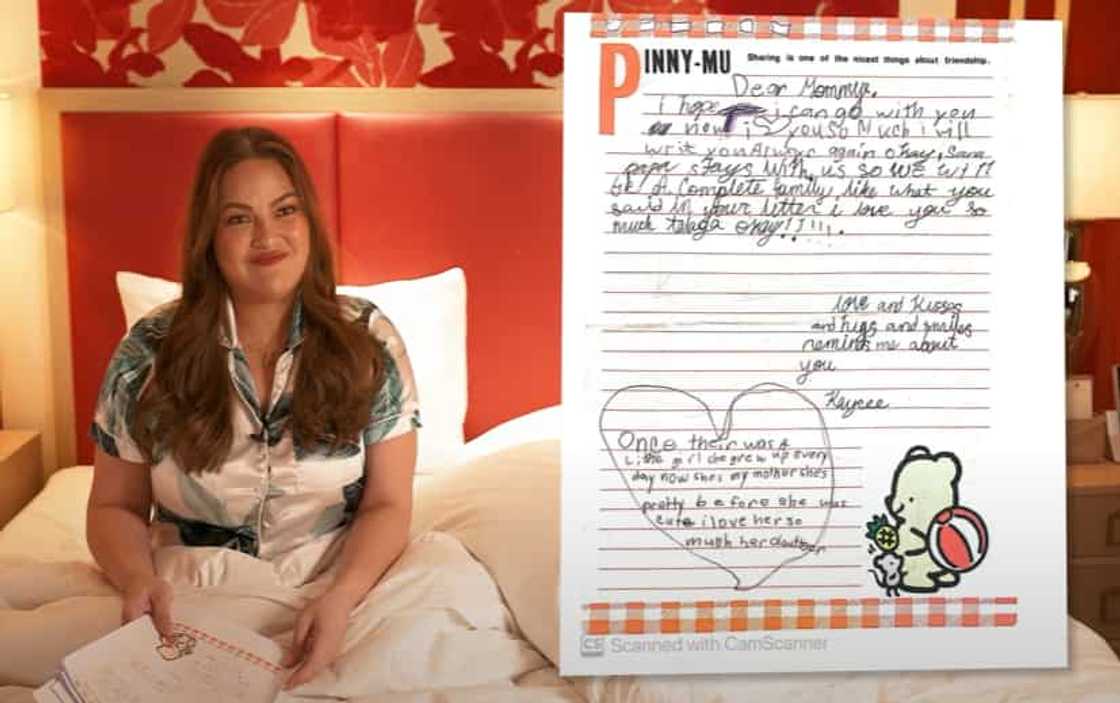 PINNY-MU Sharing is one of the nicest things about friendship.
Dear Mommy,
I hope i can go with you
now i you so Much i will
writ you Always again okay, Sana
papa stays with us so we will
be A Complete family like what you
said in your letter i love you so
much talaga okay!!!!!.
love and Kisses
and hugs and smiles
reminds me about
you
Kaycee
Once their was A
little girl she grew up every
day now she's my mother shes
pretty before she was
cute i love her so
much her
CS Scanned with CamScanner